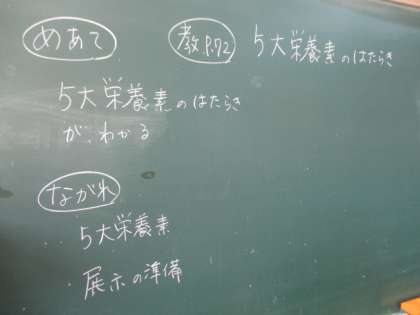 めあて
教P.72 5大栄養素のはたらき
5大栄養素のはたらき
が、わかる
ながれ
5大栄養素
展示の準備